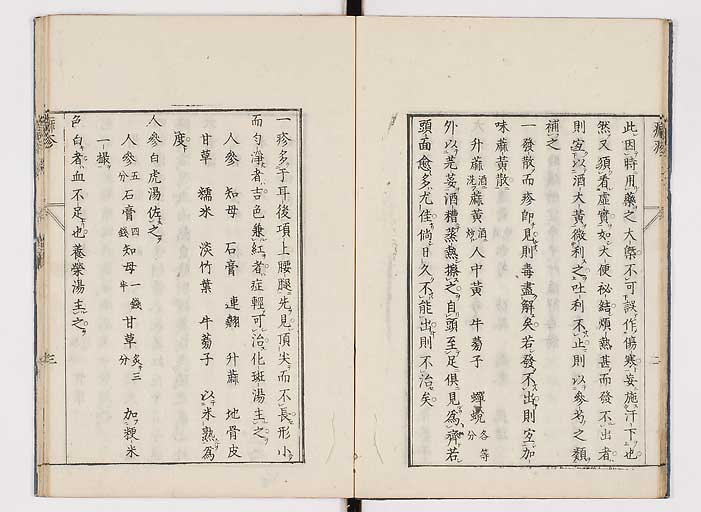 此因時用藥之大槩不可誤作傷寒妄施汗下也
然又須看虛實如大便秘結煩熱甚而發不出者
則宜以酒大黃微利之吐利不止則以參芩之類
補之
一發散而疹卽見則毒盡解矣若發不出則宜加
味麻黃散
升麻酒洗麻黃酒炒人中黃 牛蒡子 蟬蛻各等分
外以芫荽酒糟蒸熱擦之自頭至足俱見爲齊若
頭面愈多尤佳倘日久不能出則不治矣
二
一疹多于耳後項上腰腿先見頂尖而不長形小
而勻淨者吉色兼紅者症輕可治化斑湯主之
人參 知母 石膏 連翹 升麻 地骨皮
甘草 糯米 淡竹葉 牛蒡子 以米熟爲
度
人參白虎湯佐之
人參五分石膏四錢知母一錢半甘草炙三分 加粳米
一撮
色白者血不足也養榮湯主之
麻疹
三